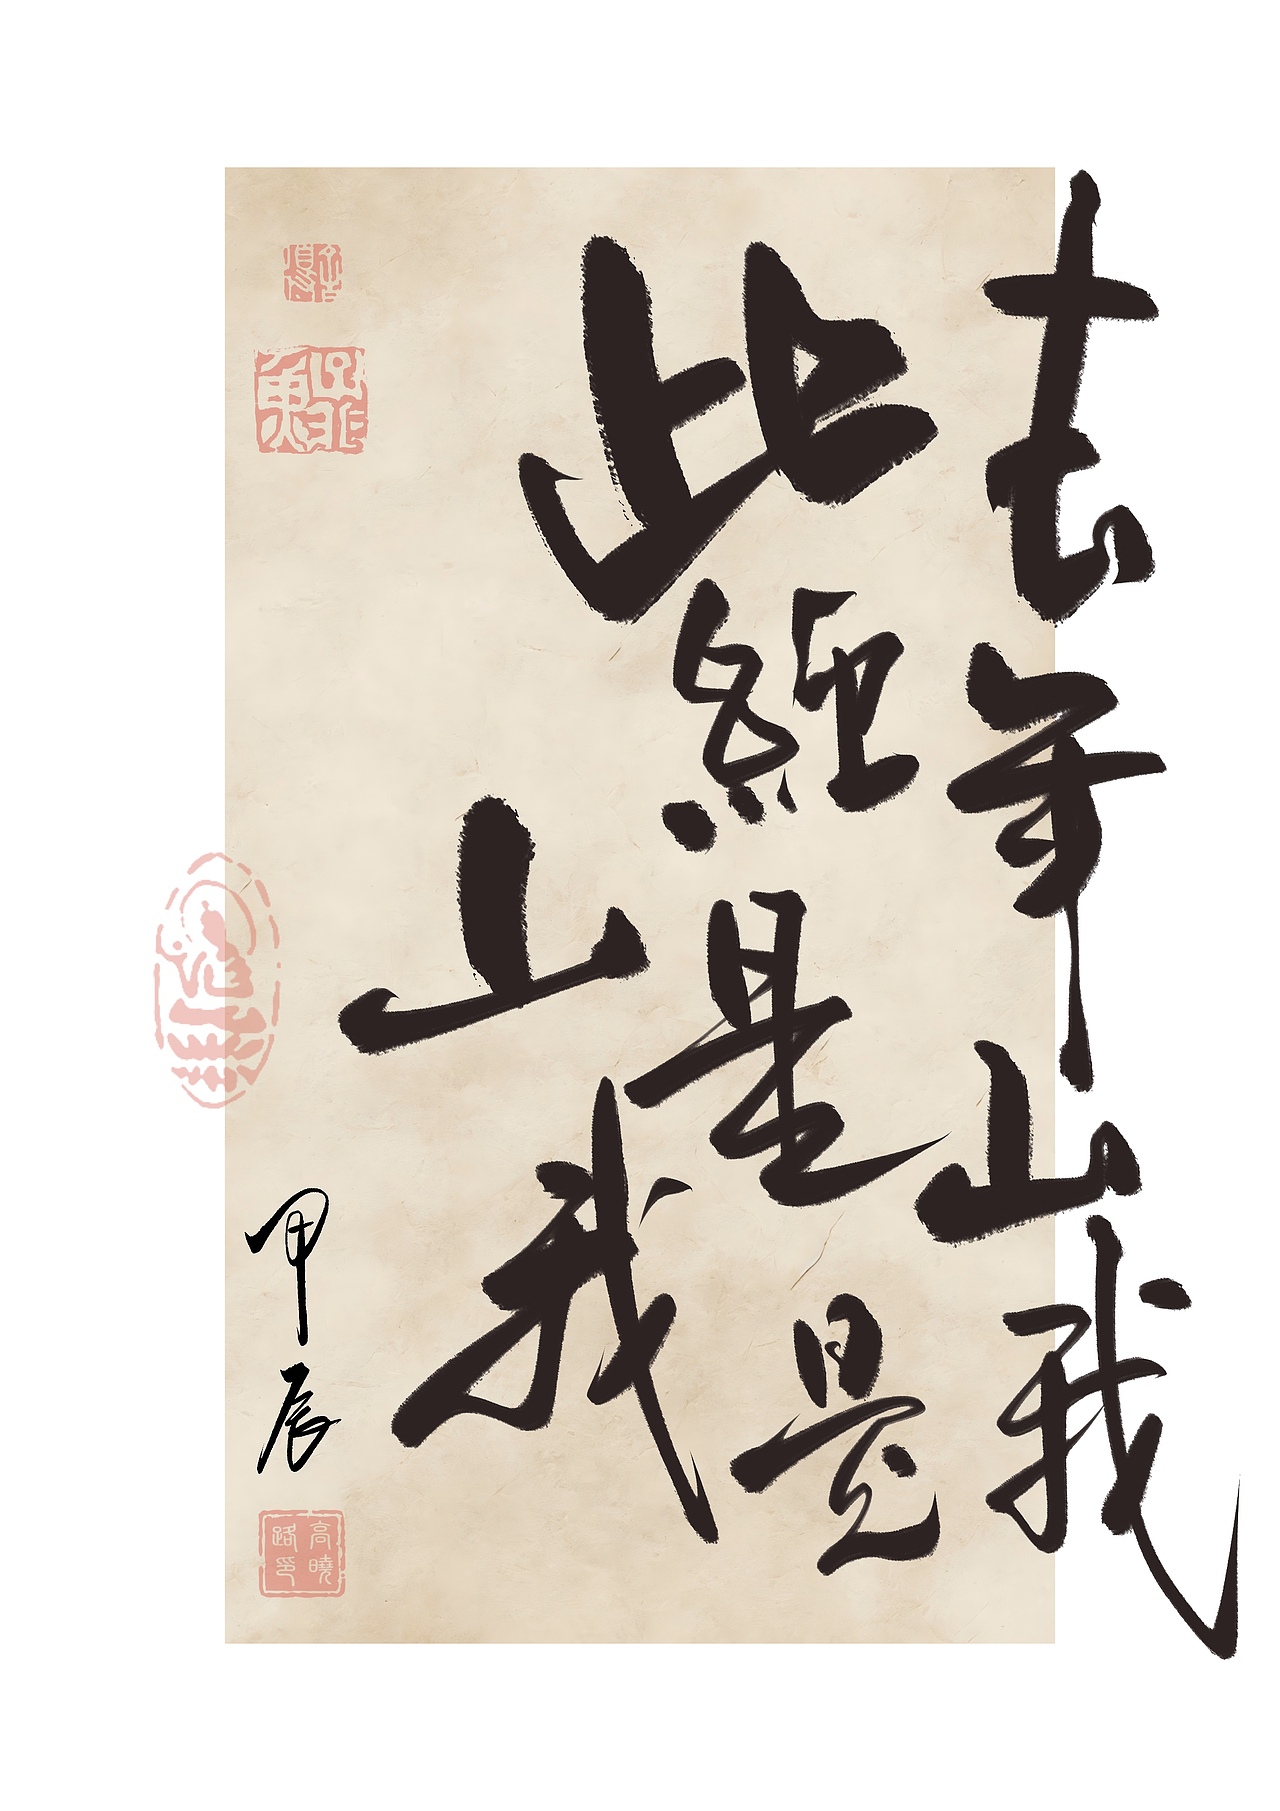 去年山我
此經是是
山我
甲辰
高曉路印